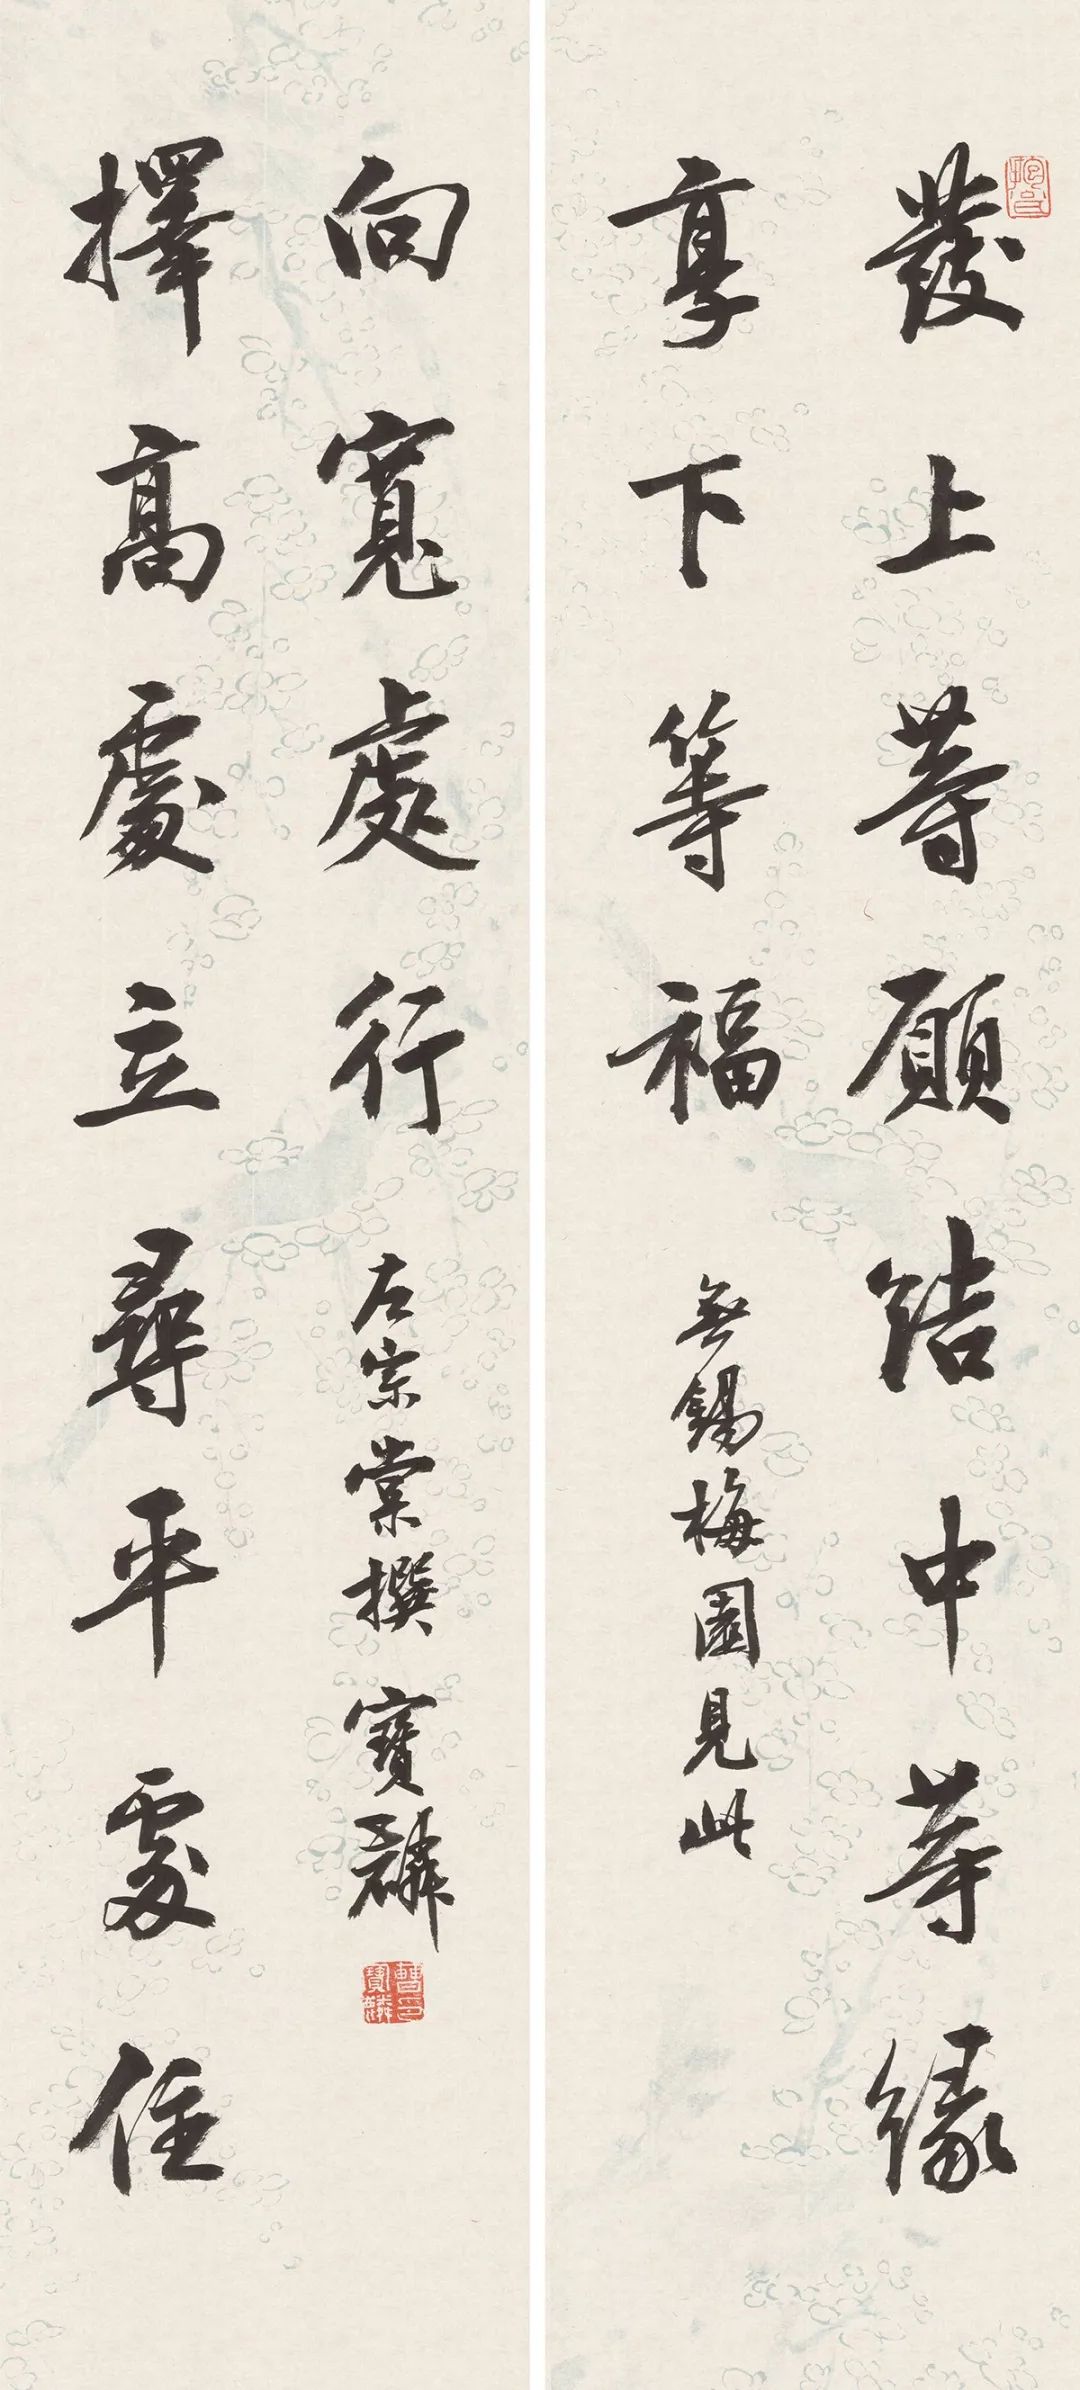 發上等願結中等緣
享下等福
無錫梅園見此
擇高處立尋平處住
向寬處行
左宗棠撰 寶麟
曹印
寶麟